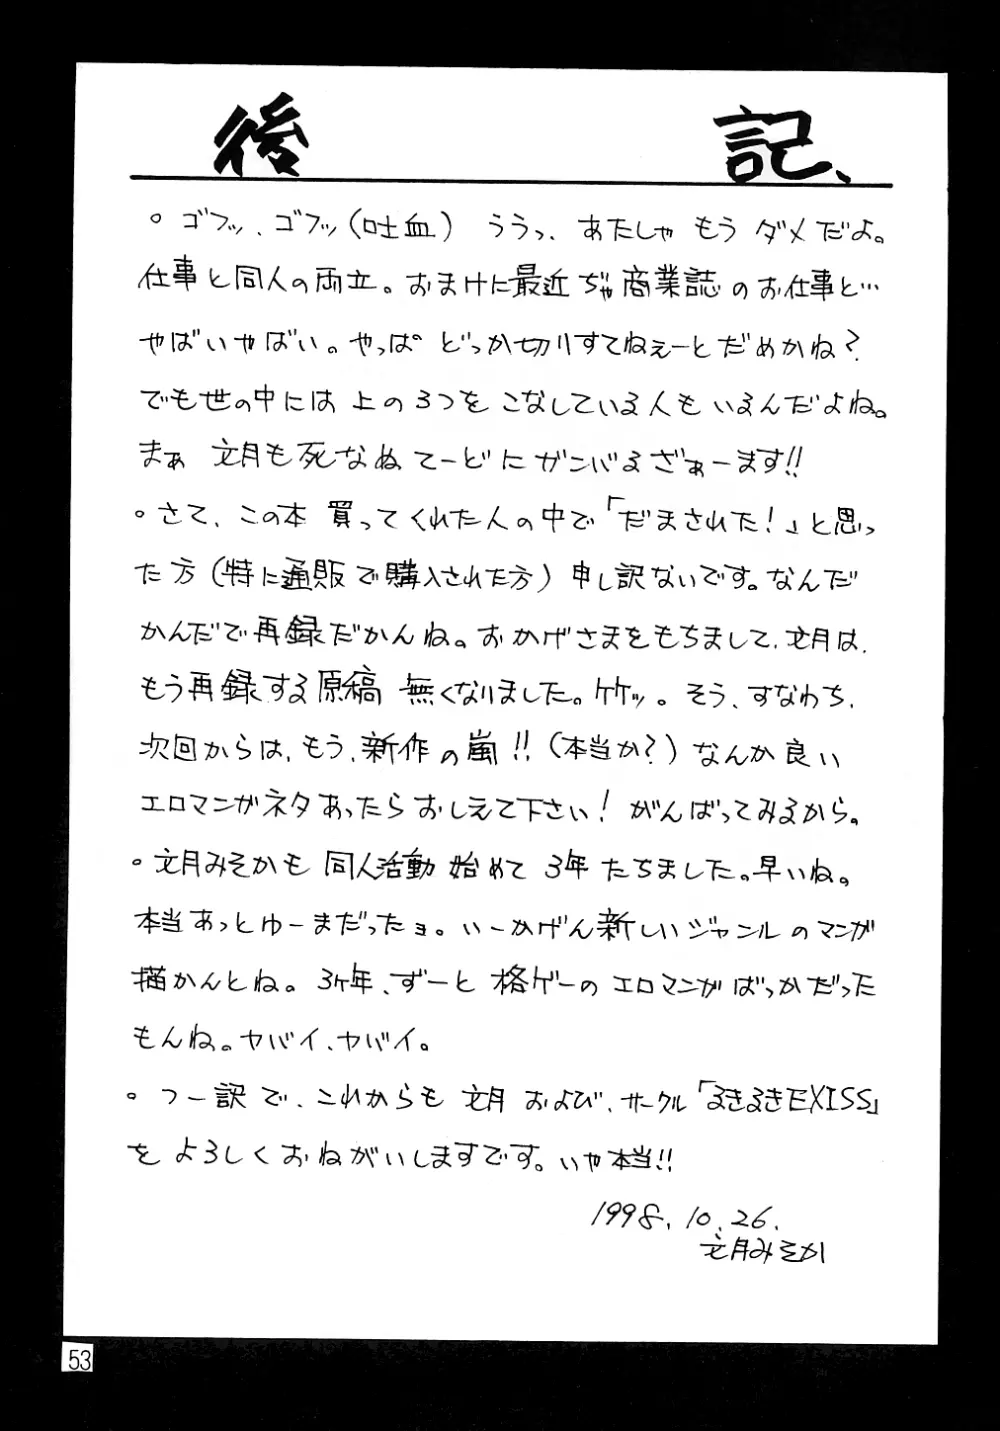 後記、
。ゴフッ、ゴフッ(吐血) ううっ、あたしゃ もう ダメだよ。
仕事と同人の両立。おまけに最近ぢゃ商業誌のお仕事と…
やばいやばい。やっぱ どっか切りすてねぇーとだめかね?
でも世の中には 上の3つを こなしている人も いるんだよね。
まぁ 文月も死なぬてーどにガンバるざぁーます!!
。さて、この本 買ってくれた人の中で「だまされた!」と思っ
た方(特に通販で購入された方)申し訳ないです。なんだ
かんだで再録だかんね。おかげさまをもちまして、文月は、
もう再録する原稿 無くなりました。ケケッ。そう、すなわち、
次回からは、もう、新作の嵐!!(本当か?)なんか良い
エロマンガネタあったらおしえて下さい!がんばってみるから。
。文月みそかも 同人活動 始めて 3年 たちました。早いね。
本当あっとゆーまだったョ。いーかげん新しいジャンルのマンガ
描かんとね。3ヶ年、ずーと 格ゲーの エロマンガばっかだった
もんね。ヤバイ、ヤバイ。
。つー訳で、これからも 文月 および、サークル「るきるきEXISS」
を よろしくおねがいしますです。いや本当!!
1998.10.26.
文月みそか
53